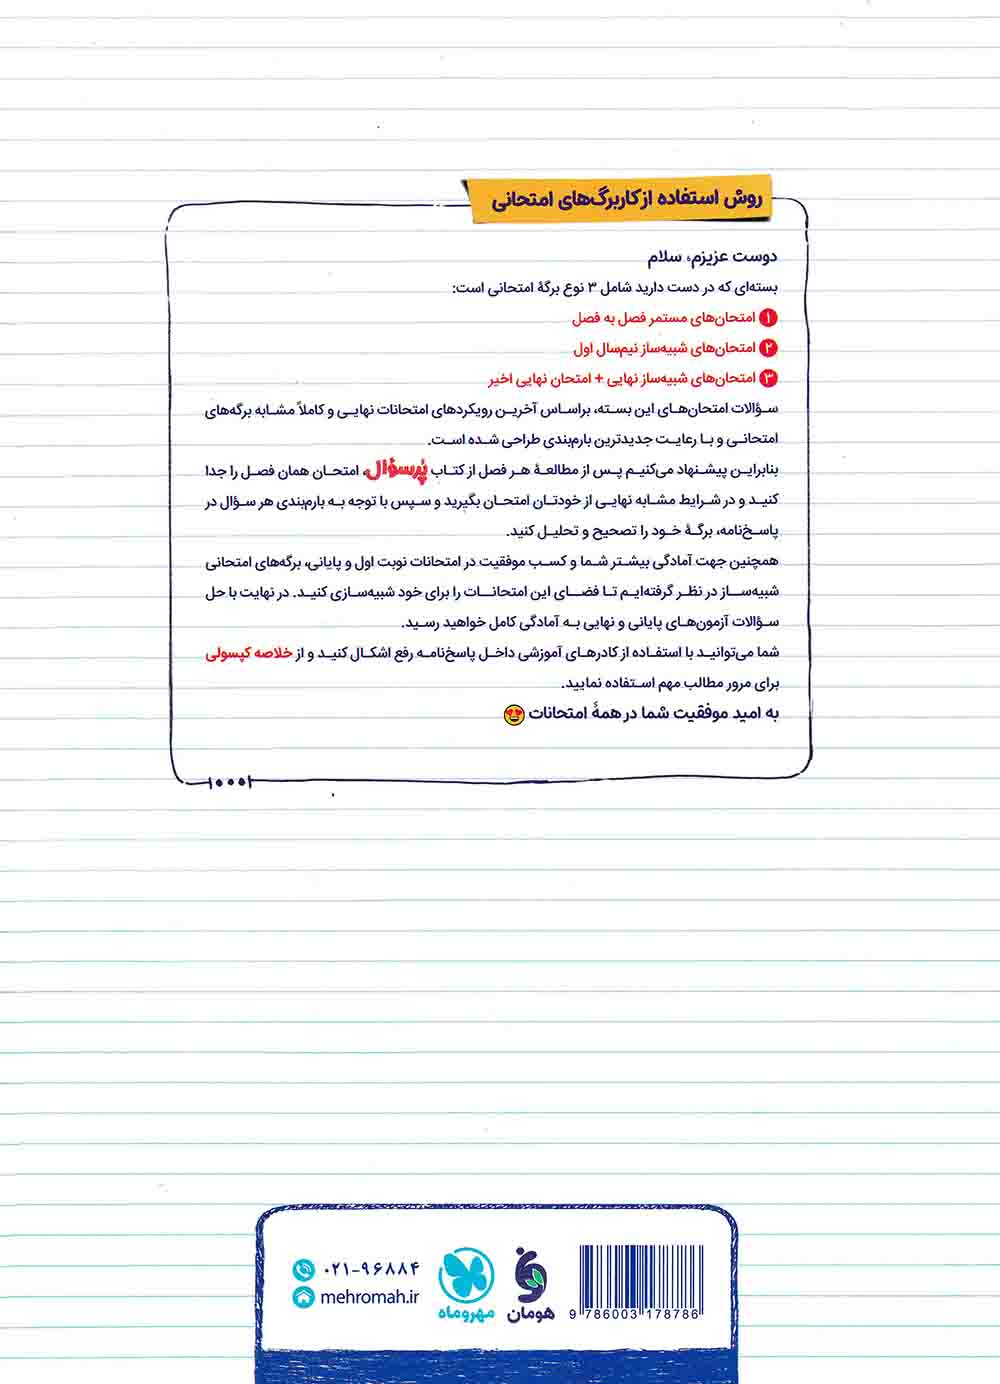 روش استفاده از کاربرگ‌های امتحانی
دوست عزیزم، سلام
بسته‌ای که در دست دارید شامل ۳ نوع برگهٔ امتحانی است:
۱ امتحان‌های مستمر فصل به فصل
۲ امتحان‌های شبیه‌ساز نیم‌سال اول
۳ امتحان‌های شبیه‌ساز نهایی + امتحان نهایی اخیر
سؤالات امتحان‌های این بسته، براساس آخرین رویکردهای امتحانات نهایی و کاملاً مشابه برگه‌های
امتحانی و با رعایت جدیدترین بارم‌بندی طراحی شده است.
بنابراین پیشنهاد می‌کنیم پس از مطالعهٔ هر فصل از کتاب پُرسؤال، امتحان همان فصل را جدا
کنید و در شرایط مشابه نهایی از خودتان امتحان بگیرید و سپس با توجه به بارم‌بندی هر سؤال در
پاسخ‌نامه، برگهٔ خود را تصحیح و تحلیل کنید.
همچنین جهت آمادگی بیشتر شما و کسب موفقیت در امتحانات نوبت اول و پایانی، برگه‌های امتحانی
شبیه‌ساز در نظر گرفته‌ایم تا فضای این امتحانات را برای خود شبیه‌سازی کنید. در نهایت با حل
سؤالات آزمون‌های پایانی و نهایی به آمادگی کامل خواهید رسید.
شما می‌توانید با استفاده از کادرهای آموزشی داخل پاسخ‌نامه رفع اشکال کنید و از خلاصه کپسولی
برای مرور مطالب مهم استفاده نمایید.
به امید موفقیت شما در همهٔ امتحانات 😍
۰۲۱-۹۶۸۸۴
mehromah.ir
مهروماه
هومان
9 786003 178786